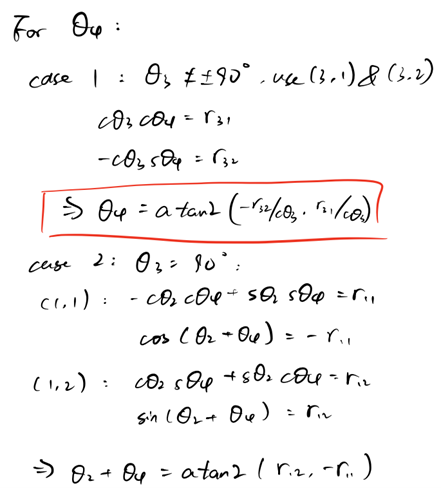 For θ₄ :
case 1 : θ₃ ≠ ±90°, use (3,1) & (3,2)
cθ₃ cθ₄ = r₃₁
-cθ₃ sθ₄ = r₃₂
⇒ θ₄ = atan2 (-r₃₂/cθ₃, r₃₁/cθ₃)
case 2 : θ₃ = 90° :
(1,1) : -cθ₂ cθ₄ + sθ₂ sθ₄ = r₁₁
cos (θ₂ + θ₄) = - r₁₁
(1,2) : cθ₂ sθ₄ + sθ₂ cθ₄ = r₁₂
sin (θ₂ + θ₄) = r₁₂
⇒ θ₂ + θ₄ = atan2 ( r₁₂, -r₁₁ )